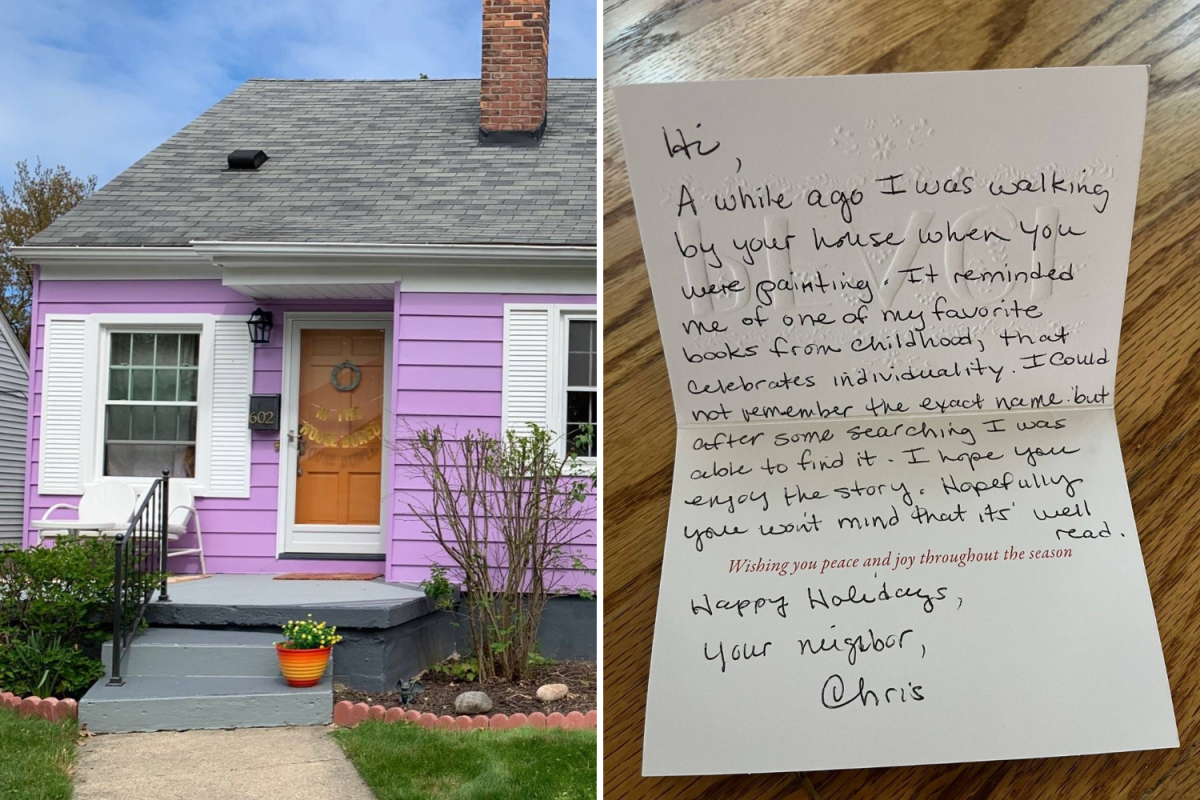 602
IN THE
Hi,
A while ago I was walking
by your house when you
were painting. It reminded
me of one of my favorite
books from childhood, that
celebrates individuality. I could
not remember the exact name but
after some searching I was
able to find it. I hope you
enjoy the story. Hopefully
you won't mind that its' well
read.
Wishing you peace and joy throughout the season
Happy Holidays,
Your neighbor,
Chris